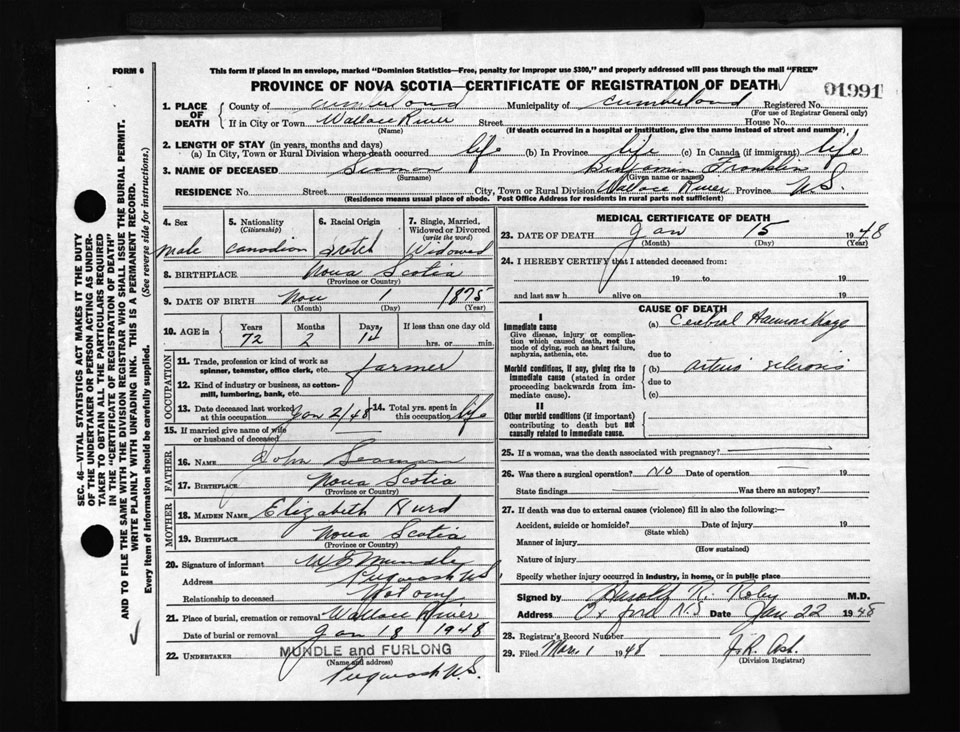 FORM 6
This form if placed in an envelope, marked "Dominion Statistics—Free, penalty for improper use $300," and properly addressed will pass through the mail "FREE"
PROVINCE OF NOVA SCOTIA—CERTIFICATE OF REGISTRATION OF DEATH
01991
1. PLACE OF DEATH
County of Cumberland Municipality of Cumberland Registered No.
(For use of Registrar General only)
If in City or Town Wallace River Street House No.
(Name) (If death occurred in a hospital or institution, give the name instead of street and number)
2. LENGTH OF STAY (in years, months and days)
(a) In City, Town or Rural Division where death occurred life (b) In Province life (c) In Canada (if immigrant) life
3. NAME OF DECEASED Benjamin Franklin
(Surname) (Given name or names)
RESIDENCE No. Street City, Town or Rural Division Wallace River Province N.S.
(Residence means usual place of abode. Post Office Address for residents in rural parts not sufficient)
SEC. 46—VITAL STATISTICS ACT MAKES IT THE DUTY
OF THE UNDERTAKER OR PERSON ACTING AS UNDER-
TAKER TO OBTAIN ALL THE PARTICULARS REQUIRED
IN THE "CERTIFICATE OF REGISTRATION OF DEATH"
AND TO FILE THE SAME WITH THE DIVISION REGISTRAR WHO SHALL ISSUE THE BURIAL PERMIT.
WRITE PLAINLY WITH UNFADING INK. THIS IS A PERMANENT RECORD.
Every item of information should be carefully supplied. (See reverse side for instructions.)
4. Sex
male
5. Nationality
(Citizenship)
Canadian
6. Racial Origin
Scotch
7. Single, Married,
Widowed or Divorced
(write the word)
Widowed
8. BIRTHPLACE Nova Scotia
(Province or Country)
9. DATE OF BIRTH Nov 1 1875
(Month) (Day) (Year)
10. AGE in
Years Months Days If less than one day old
72 2 14 hrs. or min.
OCCUPATION
11. Trade, profession or kind of work as
spinner, teamster, office clerk, etc. farmer
12. Kind of industry or business, as cotton-
mill, lumbering, bank, etc.
13. Date deceased last worked
at this occupation Jan 2/48
14. Total yrs. spent in
this occupation life
15. If married give name of wife
or husband of deceased
FATHER
16. NAME John Seaman
17. BIRTHPLACE Nova Scotia
(Province or Country)
MOTHER
18. MAIDEN NAME Elizabeth Hurd
19. BIRTHPLACE Nova Scotia
(Province or Country)
20. Signature of informant
Address Pugwash N.S.
Relationship to deceased Not any
21. Place of burial, cremation or removal Wallace River
Date of burial or removal Jan 18 1948
22. UNDERTAKER MUNDLE and FURLONG
(Name and address)
Pugwash N.S.
MEDICAL CERTIFICATE OF DEATH
23. DATE OF DEATH Jan 15 1948
(Month) (Day) (Year)
24. I HEREBY CERTIFY that I attended deceased from:
19 to 19
and last saw h alive on 19
CAUSE OF DEATH
I
Immediate cause
Give disease, injury or complica-
tion which caused death, not the
mode of dying, such as heart failure,
asphyxia, asthenia, etc.
(a) Cerebral Haemorrhage
due to
Morbid conditions, if any, giving rise to
immediate cause (stated in order
proceeding backwards from im-
mediate cause).
(b) arterio sclerosis
due to
(c)
II
Other morbid conditions (if important)
contributing to death but not
causally related to immediate cause.
25. If a woman, was the death associated with pregnancy?
26. Was there a surgical operation? NO Date of operation 19
State findings Was there an autopsy?
27. If death was due to external causes (violence) fill in also the following:—
Accident, suicide or homicide? Date of injury 19
(State which)
Manner of injury
(How sustained)
Nature of injury
Specify whether injury occurred in industry, in home, or in public place
Signed by Harold R. Roby M.D.
Address Oxford N.S Date Jan 22 1948
28. Registrar's Record Number
29. Filed Mar. 1 1948
(Division Registrar)